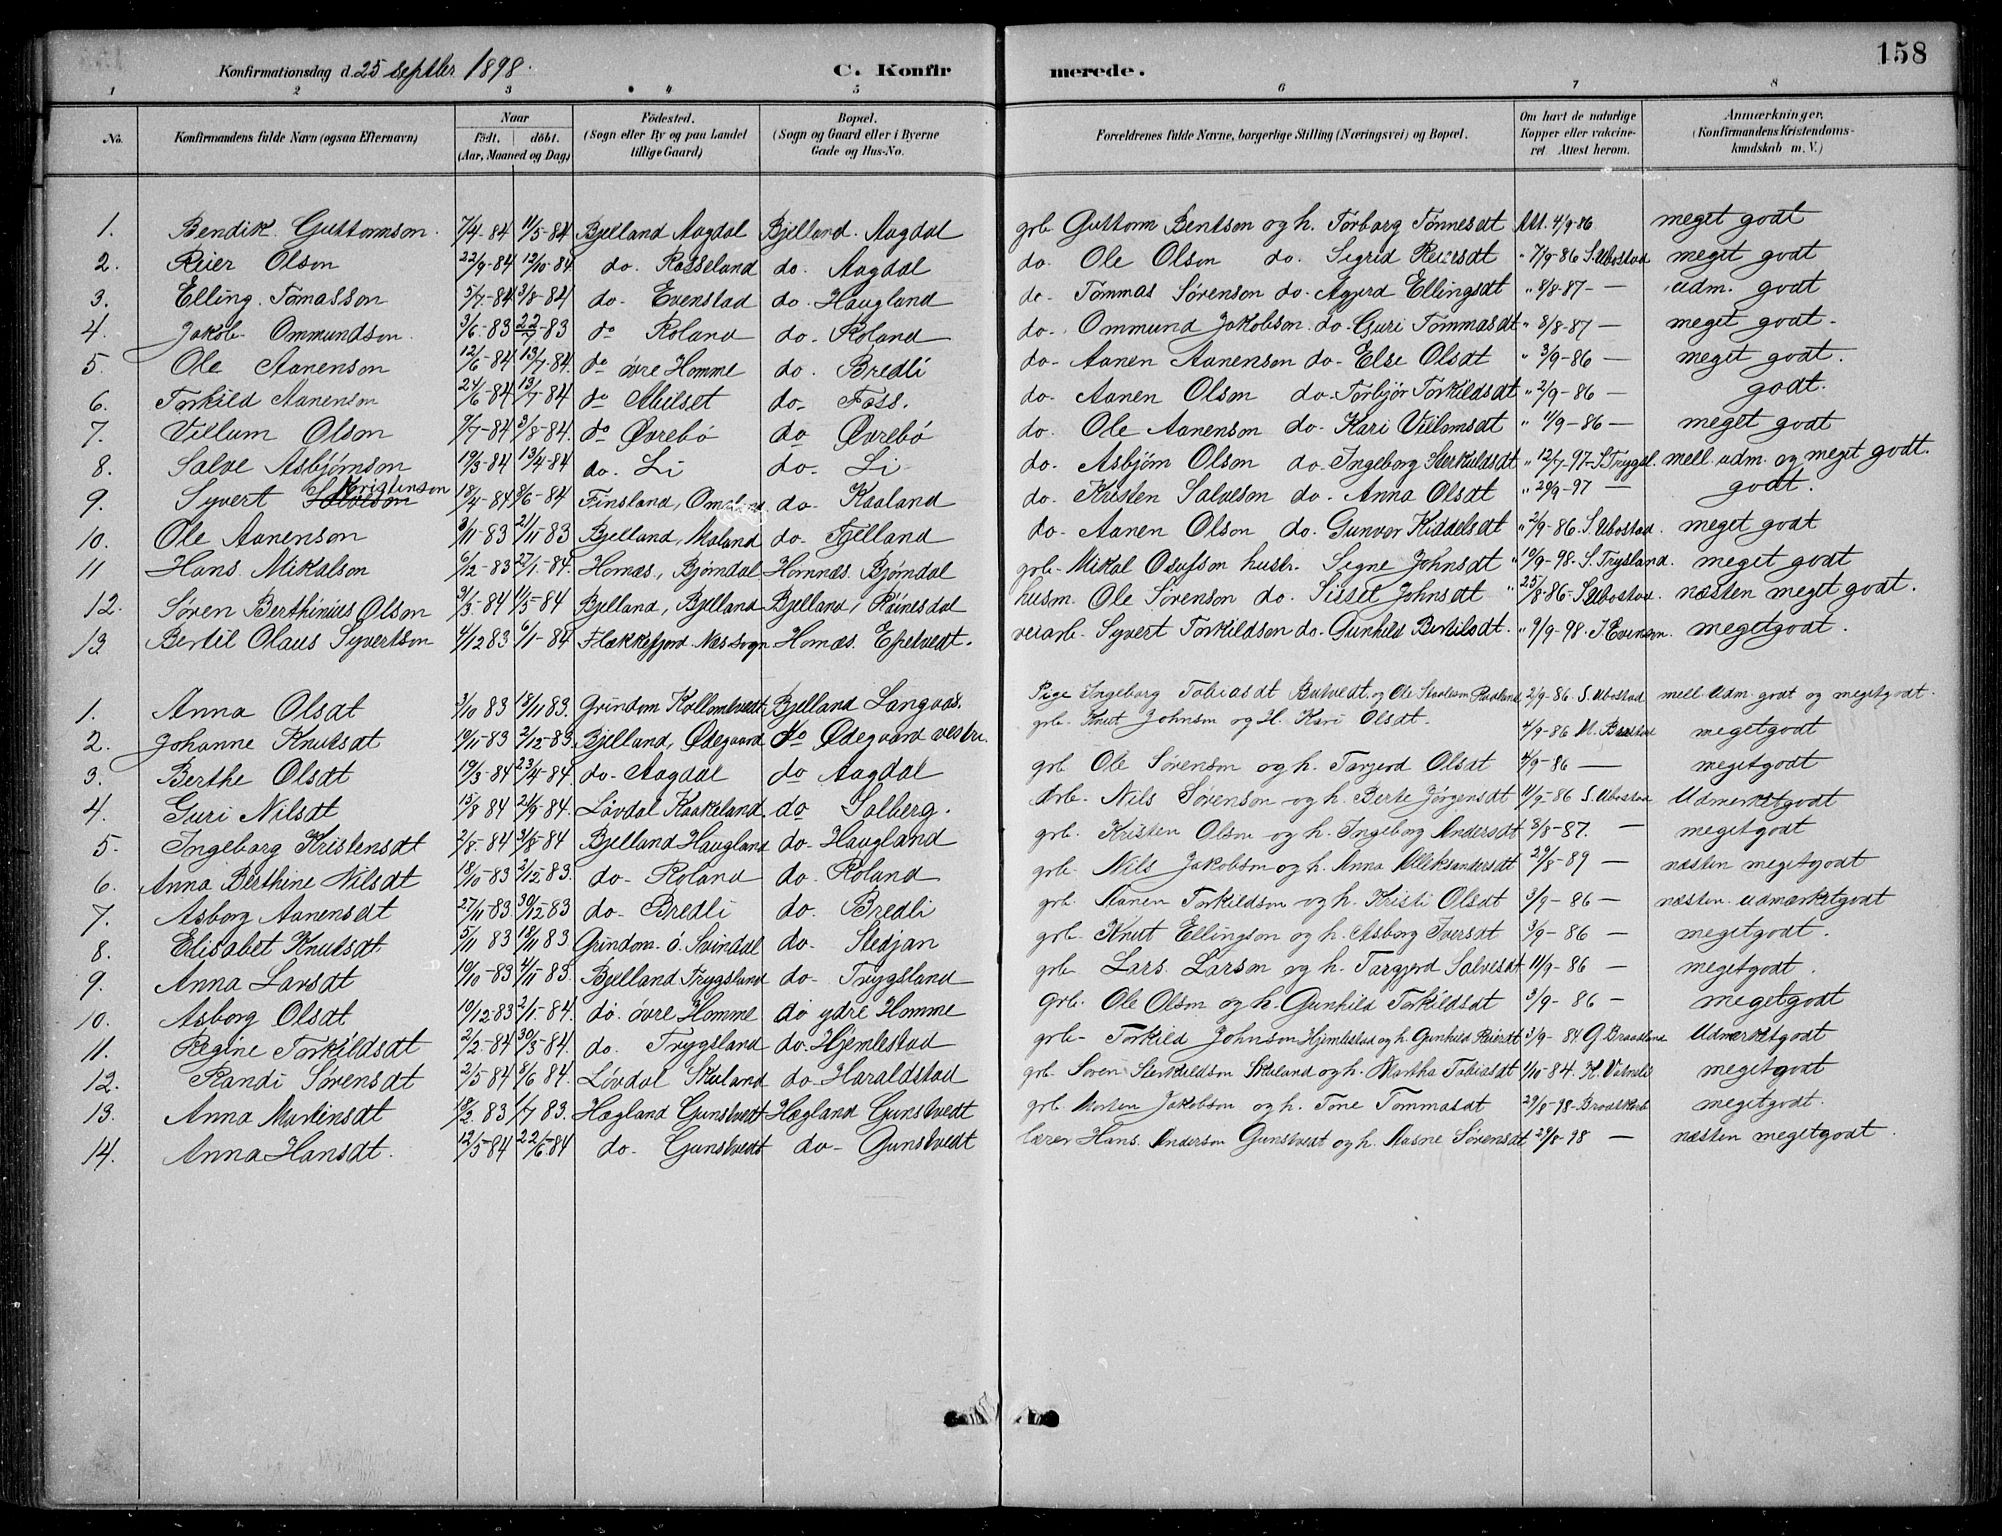 158
Konfirmationsdag d. 25 septber 1898.
C. Konfirmerede.
1 2 3 4 5 6 7 8
No.
Konfirmandens fulde Navn (ogsaa Efternavn)
Naar født. døbt. (Aar, Maaned og Dag)
Fødested. (Sogn eller By og paa Landet tillige Gaard)
Bopæl. (Sogn og Gaard eller i Byerne Gade og Hus-No.
Forældrenes fulde Navne, borgerlige Stilling (Næringsvei) og Bopæl.
Om havt de naturlige Kopper eller vakcineret. Attest herom.
Anmærkninger. (Konfirmandens Kristendomskundskab m. V.)
1. Bendik Guttormson. 7/4-84 11/5-84 Bjelland Aagdal Bjelland. Aagdal grb. Guttorm Bentson og h. Torborg Tønnesdt Att. 4/9-86 meget godt
2. Reier Olson 22/9-84 12/10-84 do. Rosseland do. Aagdal do. Ole Olson do. Sigrid Reiersdt " 7/9-86 S. Ubostad meget godt
3. Elling Tomasson 5/7-84 3/8-84 do- Evenstad do. Haugland do- Tommas Sørenson do. Agjerd Ellingsdt " 8/8-87- — udm. godt
4. Jakob Ommundson. 3/6-83 22/7-83 do Roland do. Roland do. Ommund Jakobson. do- Guri Tommasdt " 8/8-87 — meget godt-
5. Ole Aanenson 12/6-84 13/7-84 do øvre Homme do. Bredli do- Aanen Aanenson do- Else Olsdt " 3/9-86 — meget godt.
6. Torkild Aanenson 24/6-84 13/7-84 do do- Foss. do- Aanen Olson do. Torbjør Torkildsdt " 2/9-86 — godt.
7. Villum Olson 7/7-84 3/8-84 do Øvrebø do Øvrebø do. Ole Aanenson do- Kari Villomsdt " 11/9-86 — meget godt
8. Salve Asbjørnson 19/3-84 13/4-84 do. Li do- Li do. Asbjørn Olson do. Ingeborg Sterkildsdt " 12/7-97 S. Trygsl. mell. udm. og meget godt.
9. Syvert Salveson Kristenson 18/4-84 8/6-84 Finsland, do- Kaaland do. Kristen Salveson do. Anna Olsdt " 20/9-97 — godt.
10. Ole Aanenson 3/11-83 21/11 83 Bjelland, Moland do- Fjelland do- Aanen Olson do. Gunvor Kiddelsdt " 2/9-86 S. Ubostad. meget godt
11 Hans Mikalson 6/12-83 27/1-84. Hornæs, Bjørndal Hornnæs. Bjørndal grb- Mikal Olufsson hustr. Signe Johnsdt " 10/9-98. S. Trysland. meget godt
12. Søren Berthinius Olson 9/3-84 11/5 84 Bjelland, Bjelland Bjelland, husm. Ole Sørenson do. Sissel Johnsdt " 25/8-86- S. Ubostad. næsten meget godt.
13 Bertil Olaus Syvertson 4/12 83 6/1-84 Flekkefjord. Næs Sogn Hornæs. Eftetvedt. Syvert Torkildson do. Gunhild Bertilsdt. " 9/9-98. J Evenson. megetgodt.
1. Anna Olsdt 3/10 83 18/11 83. Grindom Kollomtvedt Bjelland Langaas. Pige Ingeborg Tobiasdt og Ole 2/9-86 S. Ubostad mell. udm. godt og megetgodt.
2. Johanne Knutsdt 19/11-83 2/12-83. Bjelland, Ødegaard do Ødegaard vestre. grb- Knut Johnson og H. Kari Olsdt. 4/9-86 megetgodt
3. Berthe Olsdt 19/3-84 23/4-84. do- Aagdal do Aagdal grb Ole Sørenson og h. Torjerd Olsdt 4/9-86 — megetgodt
4. Guri Nilsdt 15/8 84 21/9-84. Løvdal Kaakeland. do Solberg. Grb- Nils Sørenson og h. Berte Jørgensdt 11/9-86 S. Ubostad Udmerketgodt
5- Ingeborg Kristensdt 2/8-84 31/8-84 Bjelland Haugland do- Haugland grb- Kristen Olson og h. Ingeborg Andersdt 3/8-87. — megetgodt
6. Anna Berthine Nilsdt 18/10-83 2/12 83. do- Roland do- Roland grb. Nils Jakobson og h. Anna Alleksandersdt 29/8-89 — næsten megetgodt
7. Asborg Aanensdt 27/11-83 30/12 83 do- Bredli do. Bredli grb. Aanen Torkildson og h. Kristi Olsdt 3/9-86 — næsten udmærketgodt
8. Elisabet Knutsdt 5/11 83 18/11 83. Grindom. ø. Svindal do- Stedjan grb- Knut Ellingson og h. Asborg Iversdt 3/9-86 — megetgodt.
9. Anna Larsdt 19/10-83 4/11 83. Bjelland Trygsland do- Trygsland grb- Lars Larson og h. Torgjerd Salvesdt 11/9-86 — megetgodt.
10. Asborg Olsdt 19/12-83 2/1-84. do. øvre Homme do ydre Homme grb. Ole Olson og h. Gunhild Torkildsdt 3/9-86 — megetgodt
11. Regine Torkildsdt 2/2-84 30/3-84. do. Trygsland do. Hjemlestad grb- Torkild Johnson Hjemlestad og h. Gunhild Reiersdt 3/9-84 G Braadland Udmerketgodt
12. Randi Sørensdt 2/5 84 8/6 84. Løvdal Skuland do- Haraldstad grb. Søren Sterkildson Skuland og h. Martha Tobiasdt 1/10-84. megetgodt
13. Anna Mortensdt 18/3 83 1/7 83. Hægland Gunstvedt Hægland Gunstvedt grb. Morten Jakobson og h. Tone Tommasdt 29/8-98 megetgodt.
14. Anna Hansdt. 12/5-84 22/6-84 do- Gunstvedt do- Gunstvedt lærer Hans Anderson Gunstvedt og h. Aasne Sørensdt 29/8-98 — næsten megetgodt.